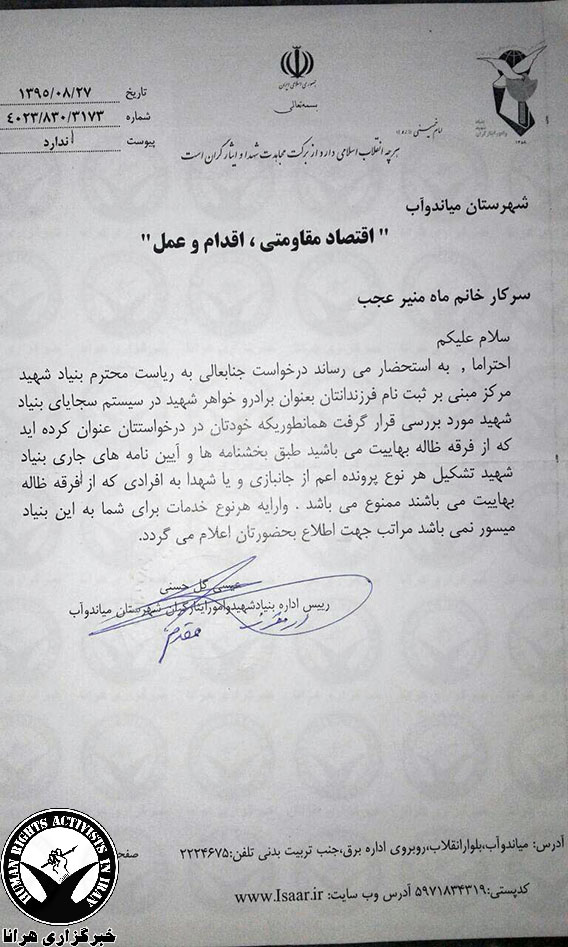 جمهوری اسلامی ایران
بسمه‌تعالی
تاریخ ۱۳۹۵/۰۸/۲۷
شماره ۴۰۲۳/۸۳۰/۳۱۷۳
پیوست ندارد
بنیاد شهید و امور ایثارگران
۱۳۵۸
امام خمینی (ره):
هرچه انقلاب اسلامی دارد از برکت مجاهدت شهدا و ایثارگران است
شهرستان میاندوآب
" اقتصاد مقاومتی ، اقدام و عمل "
سرکار خانم ماه منیر عجب
سلام علیکم
احتراما , به استحضار می رساند درخواست جنابعالی به ریاست محترم بنیاد شهید
مرکز مبنی بر ثبت نام فرزندانتان بعنوان برادرو خواهر شهید در سیستم سجایای بنیاد
شهید مورد بررسی قرار گرفت همانطوریکه خودتان در درخواستتان عنوان کرده اید
که از فرقه ظاله بهاییت می باشید طبق بخشنامه ها و آیین نامه های جاری بنیاد
شهید تشکیل هر نوع پرونده اعم از جانبازی و یا شهدا به افرادی که از فرقه ظاله
بهاییت می باشند ممنوع می باشد . وارایه هرنوع خدمات برای شما به این بنیاد
میسور نمی باشد مراتب جهت اطلاع بحضورتان اعلام می گردد.
عیسی گل حسنی
رییس اداره بنیادشهیدوامورایثارگران شهرستان میاندوآب
آدرس: میاندوآب،بلوارانقلاب،روبروی اداره برق،جنب تربیت بدنی تلفن:۲۲۲۴۶۷۵
صفحه
کدپستی:۵۹۷۱۸۳۴۳۱۹ آدرس وب سایت: www.Isaar.ir
HUMAN RIGHTS ACTIVISTS IN IRAN
خبرگزاری هرانا